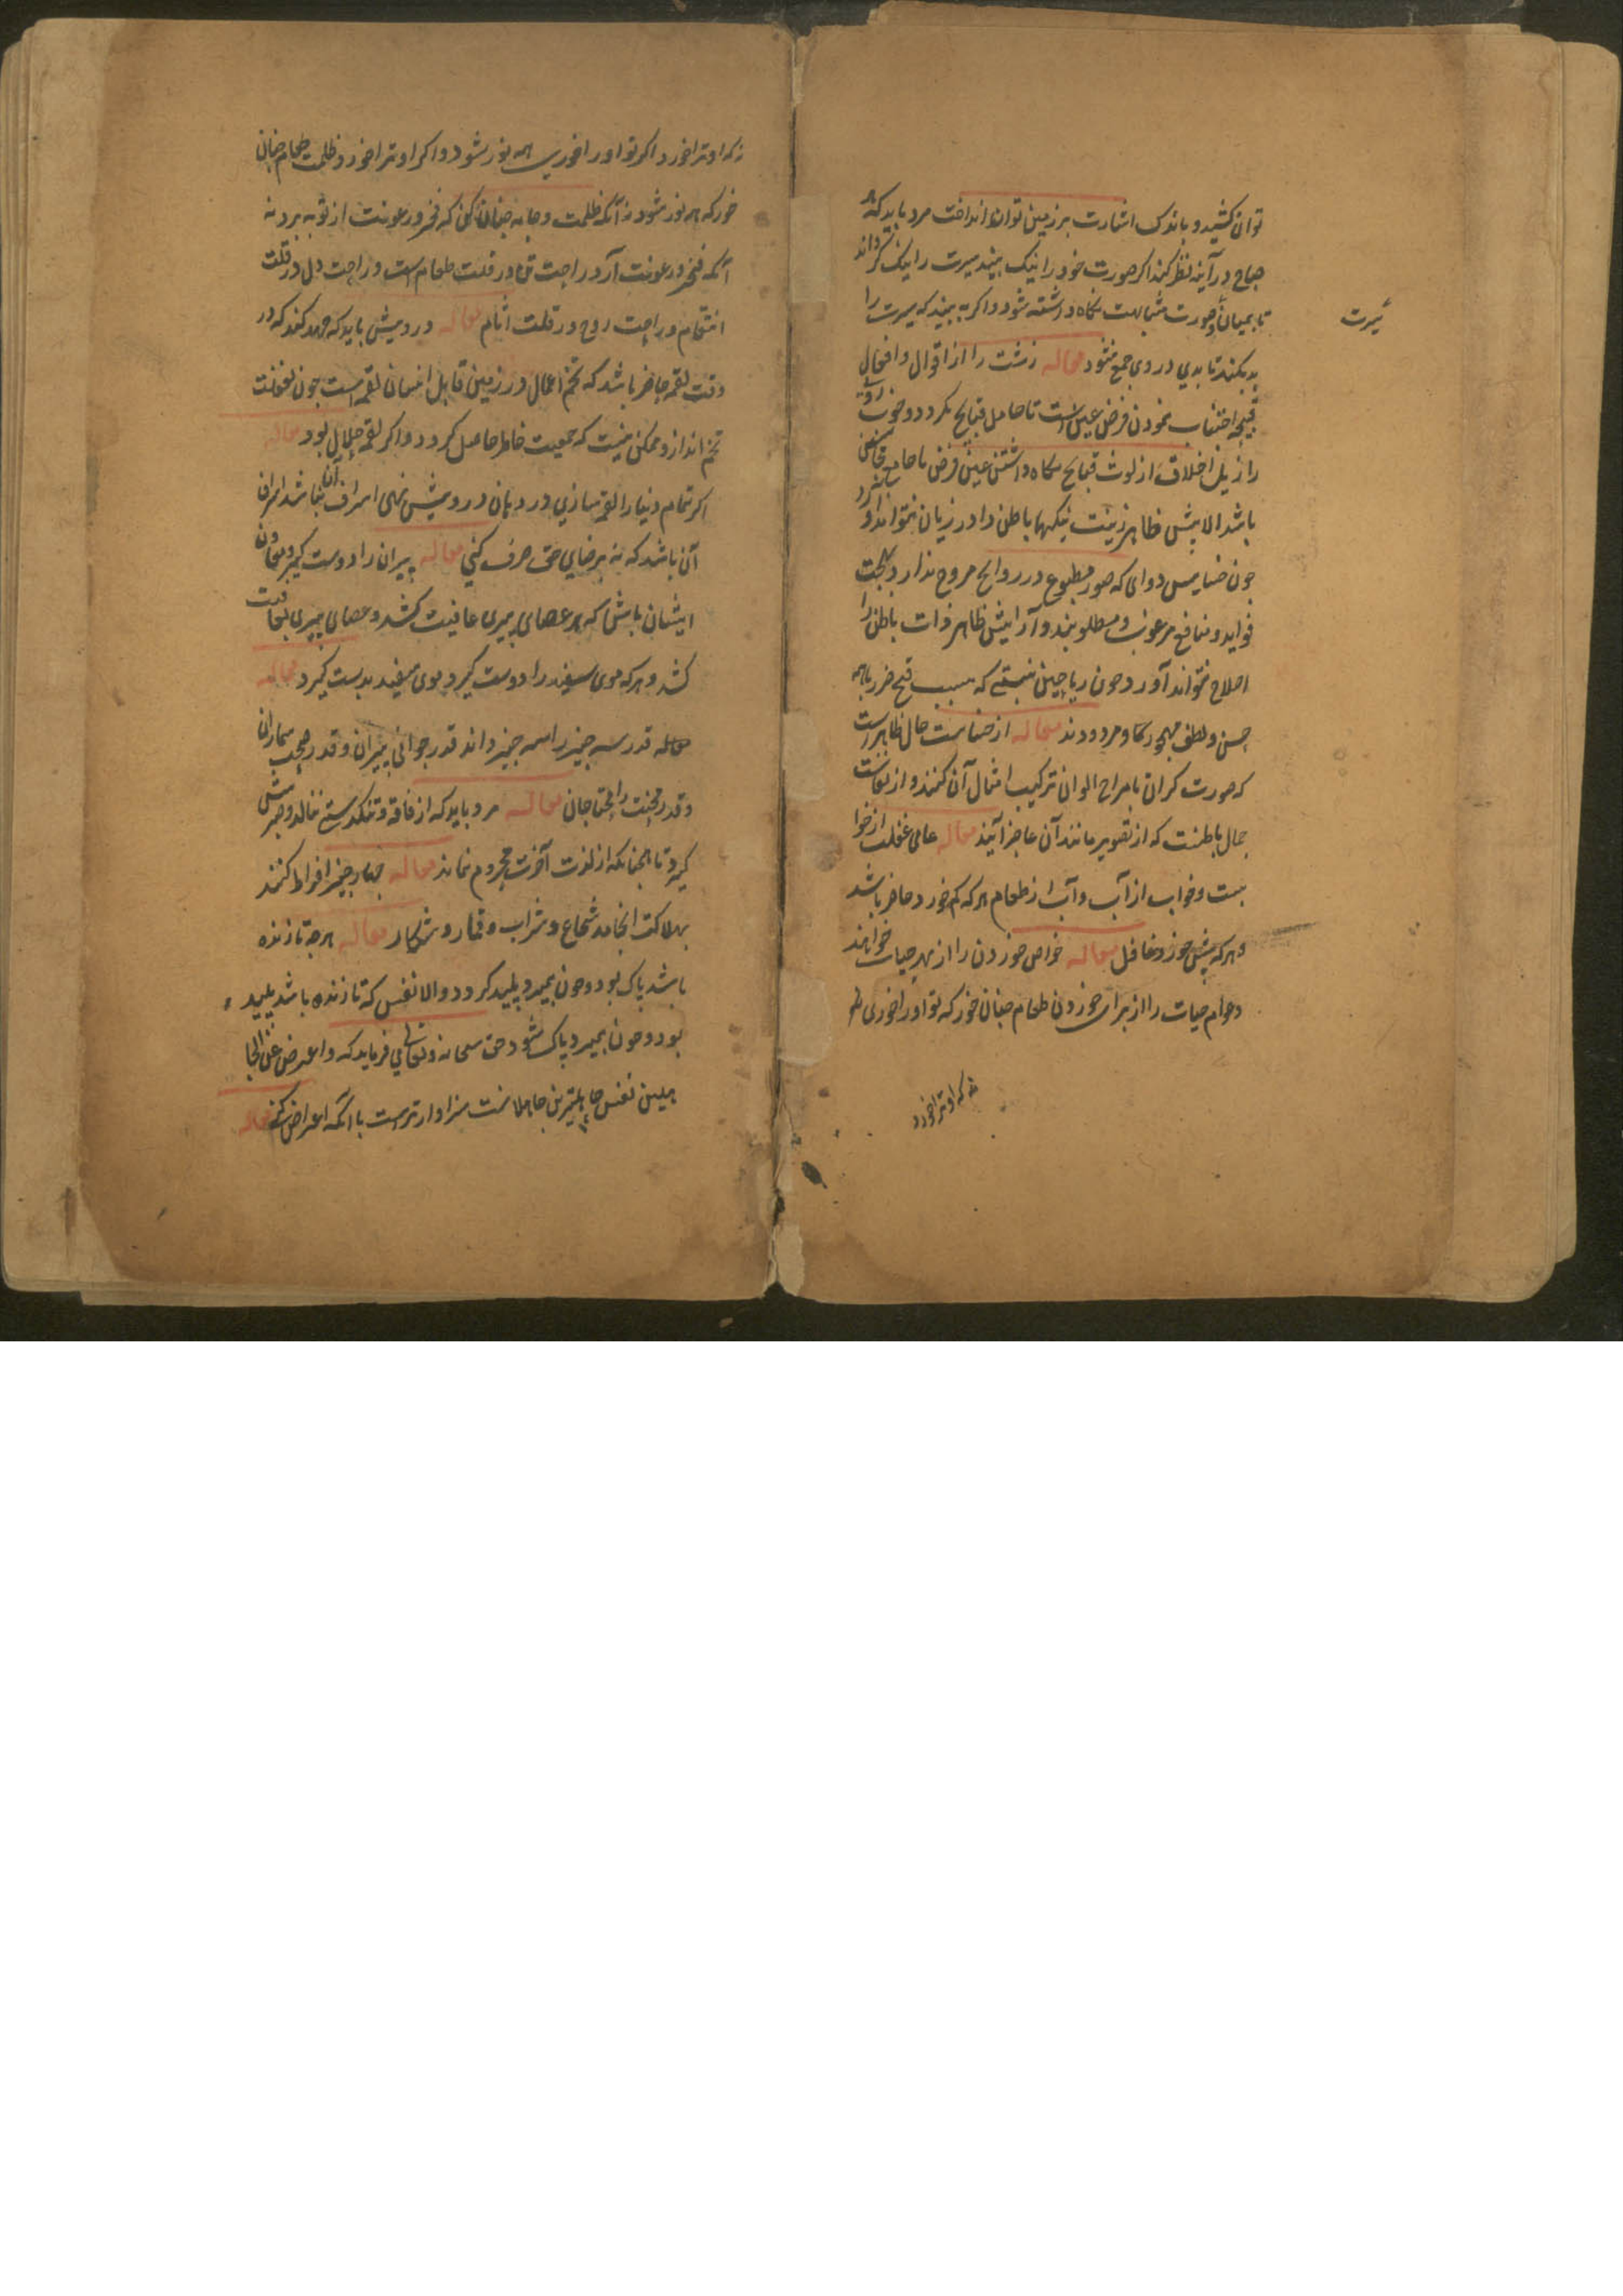 توان کشید و باندک اشارت بر زمین توان انداخت مرد باید که هر
صباح در آینه نظر کند اگر صورت خود را نیک بیند سیرت را نیک گرداند
تا بمیان صورت مشابهت نکاه داشته شود و اگر بد بیند که سیرت را
سیرت
بد نکند تا بدی در وی جمع نشود مقاله زشت را از اقوال و افعال
قبیحه اجتناب نمودن فرض عین است تا حامل قبایح نکردد و خوب روی
را ذیل اخلاق از لوث قبایح نکاه داشتن عین فرض تا جامع محاسن
باشد الایش ظاهر زینت نیکیها باطن را در زیان نتواند آورد
چون خسایس دوای که صور مطبوع در روایح مروح ندارد بجهت
فواید و منافع مرغوب و مطلوبند و آرایش ظاهر ذات باطن را
اصلاح نتواند آورد چون ریاحین که بسبب قبح ضرر با همه
حسن و لطف مهجور و مردودند مقاله از حال ظاهرست
که صورت کران بامزاج الوان ترکیب امثال آن کنند و از
جمال باطنست که از تصویر مانند آن عاجز آیند مقاله غفلت از خوا
بست و خواب از آب و آب از طعام هر که کم خورد حاضر باشد
و هر که بیش خورد غافل مقاله خواص خوردن را از بهر حیات خواهند
و عوام حیات را از برای خوردن طعام چنان خور که تو او را خوری
نه که او ترا خورد
نه که او ترا خورد اگر تو او را خوری همه نور شود و اگر او ترا خورد ظلمت طعام چنان
خور که همه نور شود نه آنکه ظلمت و جامه چنان کن که فخر و رعونت از تو ببرد نه
آنکه فخر و رعونت آرد راحت تن در قلت طعام است و راحت دل در قلت
انتقام و راحت روح در قلت اثام مقاله درویش باید که جهد کند که در
وقت لقمه حاضر باشد که تخم اعمال در زمین قابل انسان لقمه است چون بغفلت
تخم اندازد ممکن نیست که جمعیت خاطر حاصل کردد و اگر لقمه حلال بود مقاله
اگر تمام دنیا را لقمه سازی در دهان درویش نهی اسراف نباشد اسراف آن
آن باشد که نه برضای حق صرف کنی مقاله پیران را دوست گیر و معاون
ایشان باش که هر عصای پیری عاقبت کشد و عصای پیری
کشد و هر که موی سفید را دوست گیرد موی سفید بدست گیرد مقاله
مقاله قدر سه چیز را سه چیز داند قدر جوانی پیران و قدر صحت بیماران
و قدر محنت جان مقاله مرد باید که از فاقه و تنکدستی ننالد و صبر پیش
گیرد تا چنانکه از لذت آخرت محروم نماند مقاله چهار چیز افراط کنند
بهلاکت انجامد جماع و شراب و قمار و شکار مقاله هر چه تا زنده
باشد پاک بود و چون بمیرد پلید کردد الا نفس که تا زنده باشد پلید
بود و چون بمیرد پاک شود حق سبحانه و تعالی می فرماید که واعرض عن الجا
هلین نفس جاهلترین جاهلانست سزاوارترست با آنکه اعراض کنی مقاله